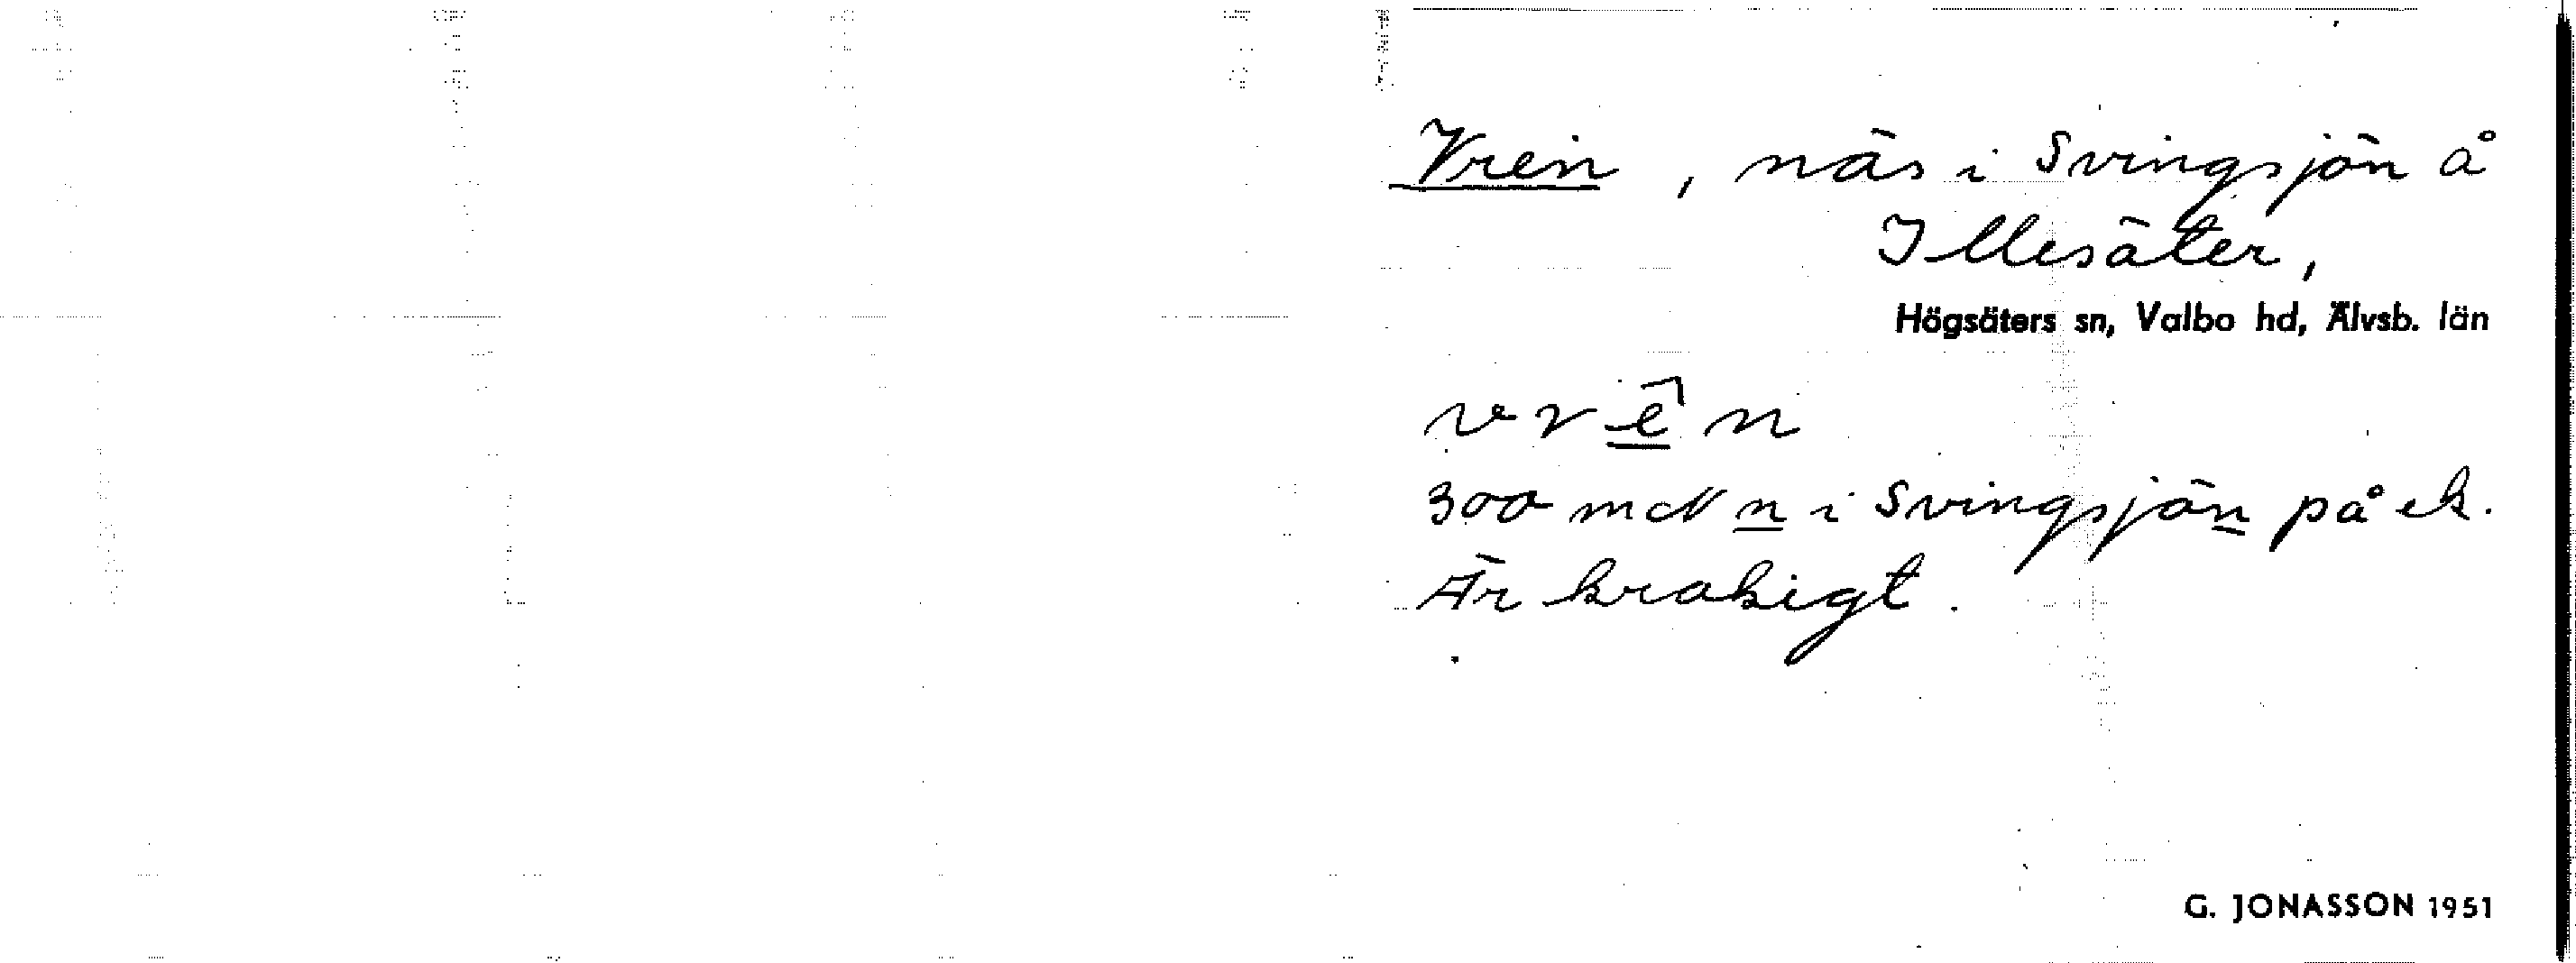 Vren, näs i Svingsjön å
Illesäter,
Högsäters sn, Valbo hd, Älvsb. län
vrên
300 m N n i Svingsjön på ek.
Är krokigt.
G. JONASSON 1951